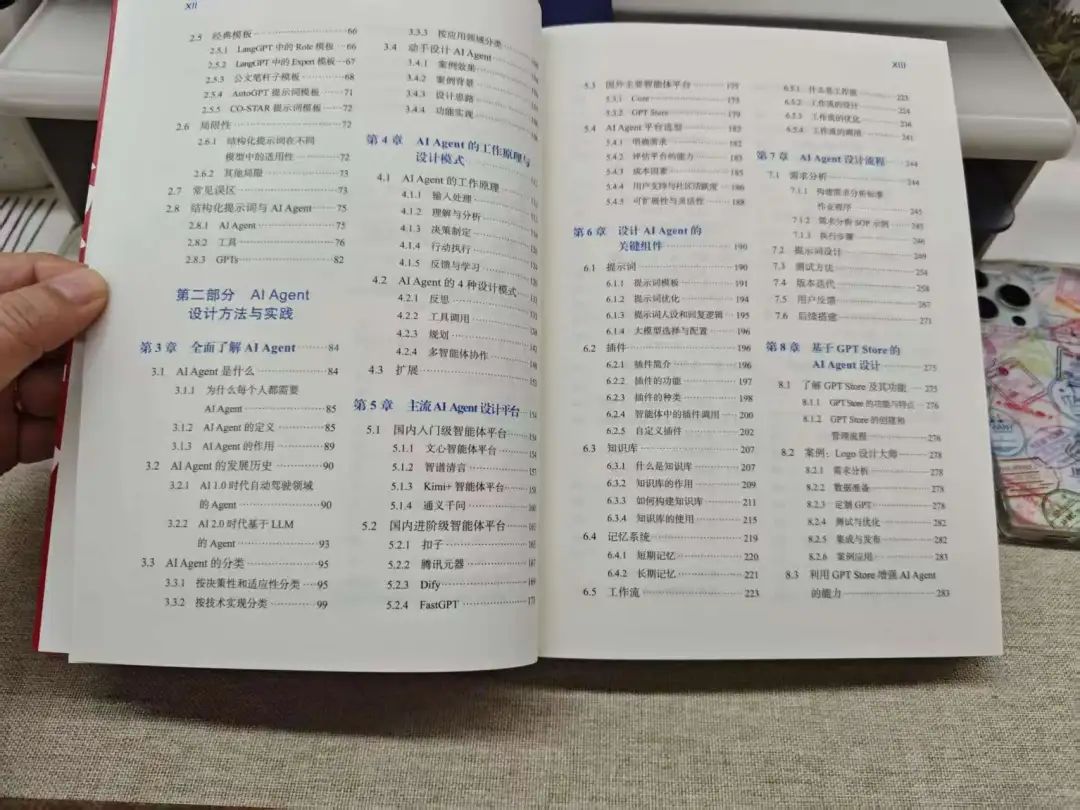 XII
2.5 经典模板 66
2.5.1 LangGPT 中的 Role 模板 66
2.5.2 LangGPT 中的 Expert 模板 67
2.5.3 公文笔杆子模板 68
2.5.4 AutoGPT 提示词模板 71
2.5.5 CO-STAR 提示词模板 72
2.6 局限性 72
2.6.1 结构化提示词在不同
模型中的适用性 72
2.6.2 其他局限 73
2.7 常见误区 73
2.8 结构化提示词与 AI Agent 75
2.8.1 AI Agent 75
2.8.2 工具 76
2.8.3 GPTs 82
第二部分 AI Agent
设计方法与实践
第 3 章 全面了解 AI Agent 84
3.1 AI Agent 是什么 84
3.1.1 为什么每个人都需要
AI Agent 85
3.1.2 AI Agent 的定义 85
3.1.3 AI Agent 的作用 89
3.2 AI Agent 的发展历史 90
3.2.1 AI 1.0 时代自动驾驶领域
的 Agent 90
3.2.2 AI 2.0 时代基于 LLM
的 Agent 93
3.3 AI Agent 的分类 95
3.3.1 按决策性和适应性分类 95
3.3.2 按技术实现分类 99
3.3.3 按应用领域分类
3.4 动手设计 AI Agent
3.4.1 案例效果
3.4.2 案例背景
3.4.3 设计思路
3.4.4 功能实现
第 4 章 AI Agent 的工作原理与
设计模式
4.1 AI Agent 的工作原理
4.1.1 输入处理
4.1.2 理解与分析
4.1.3 决策制定
4.1.4 行动执行
4.1.5 反馈与学习
4.2 AI Agent 的 4 种设计模式
4.2.1 反思
4.2.2 工具调用
4.2.3 规划
4.2.4 多智能体协作
4.3 扩展
第 5 章 主流 AI Agent 设计平台 154
5.1 国内入门级智能体平台
5.1.1 文心智能体平台
5.1.2 智谱清言 157
5.1.3 Kimi+ 智能体平台
5.1.4 通义千问 160
5.2 国内进阶级智能体平台
5.2.1 扣子
5.2.2 腾讯元器
5.2.3 Dify 169
5.2.4 FastGPT
XIII
5.3 国外主要智能体平台 175
5.3.1 Coze 175
5.3.2 GPT Store 179
5.4 AI Agent 平台选型 182
5.4.1 明确需求 182
5.4.2 评估平台的能力 183
5.4.3 成本因素 185
5.4.4 用户支持与社区活跃度 186
5.4.5 可扩展性与灵活性 188
第 6 章 设计 AI Agent 的
关键组件 190
6.1 提示词 190
6.1.1 提示词模板 191
6.1.2 提示词优化 194
6.1.3 提示词人设和回复逻辑 195
6.1.4 大模型选择与配置 196
6.2 插件 196
6.2.1 插件简介 196
6.2.2 插件的功能 197
6.2.3 插件的种类 198
6.2.4 智能体中的插件调用 200
6.2.5 自定义插件 202
6.3 知识库 207
6.3.1 什么是知识库 207
6.3.2 知识库的作用 209
6.3.3 如何构建知识库 211
6.3.4 知识库的使用 215
6.4 记忆系统 219
6.4.1 短期记忆 220
6.4.2 长期记忆 221
6.5 工作流 223
6.5.1 什么是工作流 223
6.5.2 工作流的设计 224
6.5.3 工作流的优化 236
6.5.4 工作流的调用 241
第 7 章 AI Agent 设计流程 244
7.1 需求分析 244
7.1.1 构建需求分析标准
作业程序 245
7.1.2 需求分析 SOP 示例 245
7.1.3 执行步骤 246
7.2 提示词设计 249
7.3 测试方法 254
7.4 版本迭代 258
7.5 用户反馈 267
7.6 后续搭建 271
第 8 章 基于 GPT Store 的
AI Agent 设计 275
8.1 了解 GPT Store 及其功能 275
8.1.1 GPT Store 的功能与特点 276
8.1.2 GPT Store 的创建和
管理流程 276
8.2 案例：Logo 设计大师 278
8.2.1 需求分析 278
8.2.2 数据准备 278
8.2.3 定制 GPT 278
8.2.4 测试与优化 282
8.2.5 集成与发布 282
8.2.6 案例应用 283
8.3 利用 GPT Store 增强 AI Agent
的能力 283